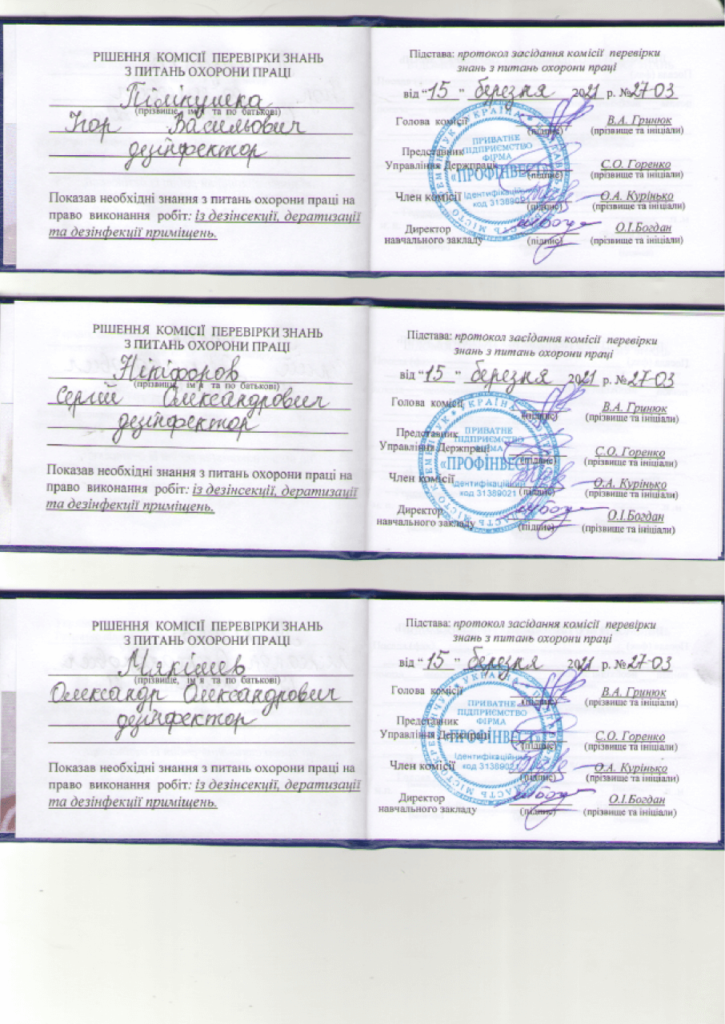 РІШЕННЯ КОМІСІЇ ПЕРЕВІРКИ ЗНАНЬ
З ПИТАНЬ ОХОРОНИ ПРАЦІ
Пілікушка
(прізвище, ім'я та по батькові)
Ігор Васильович
дезінфектор
Показав необхідні знання з питань охорони праці на
право виконання робіт: із дезінсекції, дератизації
та дезінфекції приміщень.
Підстава: протокол засідання комісії перевірки
знань з питань охорони праці
від "15" березня 2021 р. №27-03
Голова комісії В.А. Гринюк
(підпис) (прізвище та ініціали)
Представник
Управління Держпраці С.О. Горенко
(підпис) (прізвище та ініціали)
Член комісії О.А. Курінько
(прізвище та ініціали)
Директор О.І.Богдан
навчального закладу (підпис) (прізвище та ініціали)
ПРИВАТНЕ
ПІДПРИЄМСТВО
ФІРМА
«ПРОФІНВЕСТ
Ідентифікаційний
код 31389021
РІШЕННЯ КОМІСІЇ ПЕРЕВІРКИ ЗНАНЬ
З ПИТАНЬ ОХОРОНИ ПРАЦІ
Нікіфоров
(прізвище, ім'я та по батькові)
Сергій Олександрович
дезінфектор
Показав необхідні знання з питань охорони праці на
право виконання робіт: із дезінсекції, дератизації
та дезінфекції приміщень.
Підстава: протокол засідання комісії перевірки
знань з питань охорони праці
від "15" березня 2021 р. №27-03
Голова комісії В.А. Гринюк
(підпис) (прізвище та ініціали)
Представник
Управління Держпраці С.О. Горенко
(підпис) (прізвище та ініціали)
Член комісії О.А. Курінько
(прізвище та ініціали)
Директор О.І.Богдан
навчального закладу (підпис) (прізвище та ініціали)
ПРИВАТНЕ
ПІДПРИЄМСТВО
ФІРМА
«ПРОФІНВЕСТ
Ідентифікаційний
код 31389021
РІШЕННЯ КОМІСІЇ ПЕРЕВІРКИ ЗНАНЬ
З ПИТАНЬ ОХОРОНИ ПРАЦІ
Мякішев
(прізвище, ім'я та по батькові)
Олександр Олександрович
дезінфектор
Показав необхідні знання з питань охорони праці на
право виконання робіт: із дезінсекції, дератизації
та дезінфекції приміщень.
Підстава: протокол засідання комісії перевірки
знань з питань охорони праці
від "15" березня 2021 р. №27-03
Голова комісії В.А. Гринюк
(підпис) (прізвище та ініціали)
Представник
Управління Держпраці С.О. Горенко
(підпис) (прізвище та ініціали)
Член комісії О.А. Курінько
(підпис) (прізвище та ініціали)
Директор О.І.Богдан
навчального закладу (підпис) (прізвище та ініціали)
ПРИВАТНЕ
ПІДПРИЄМСТВО
ФІРМА
ПРОФІНВЕСТ
Ідентифікаційний
код 31389021